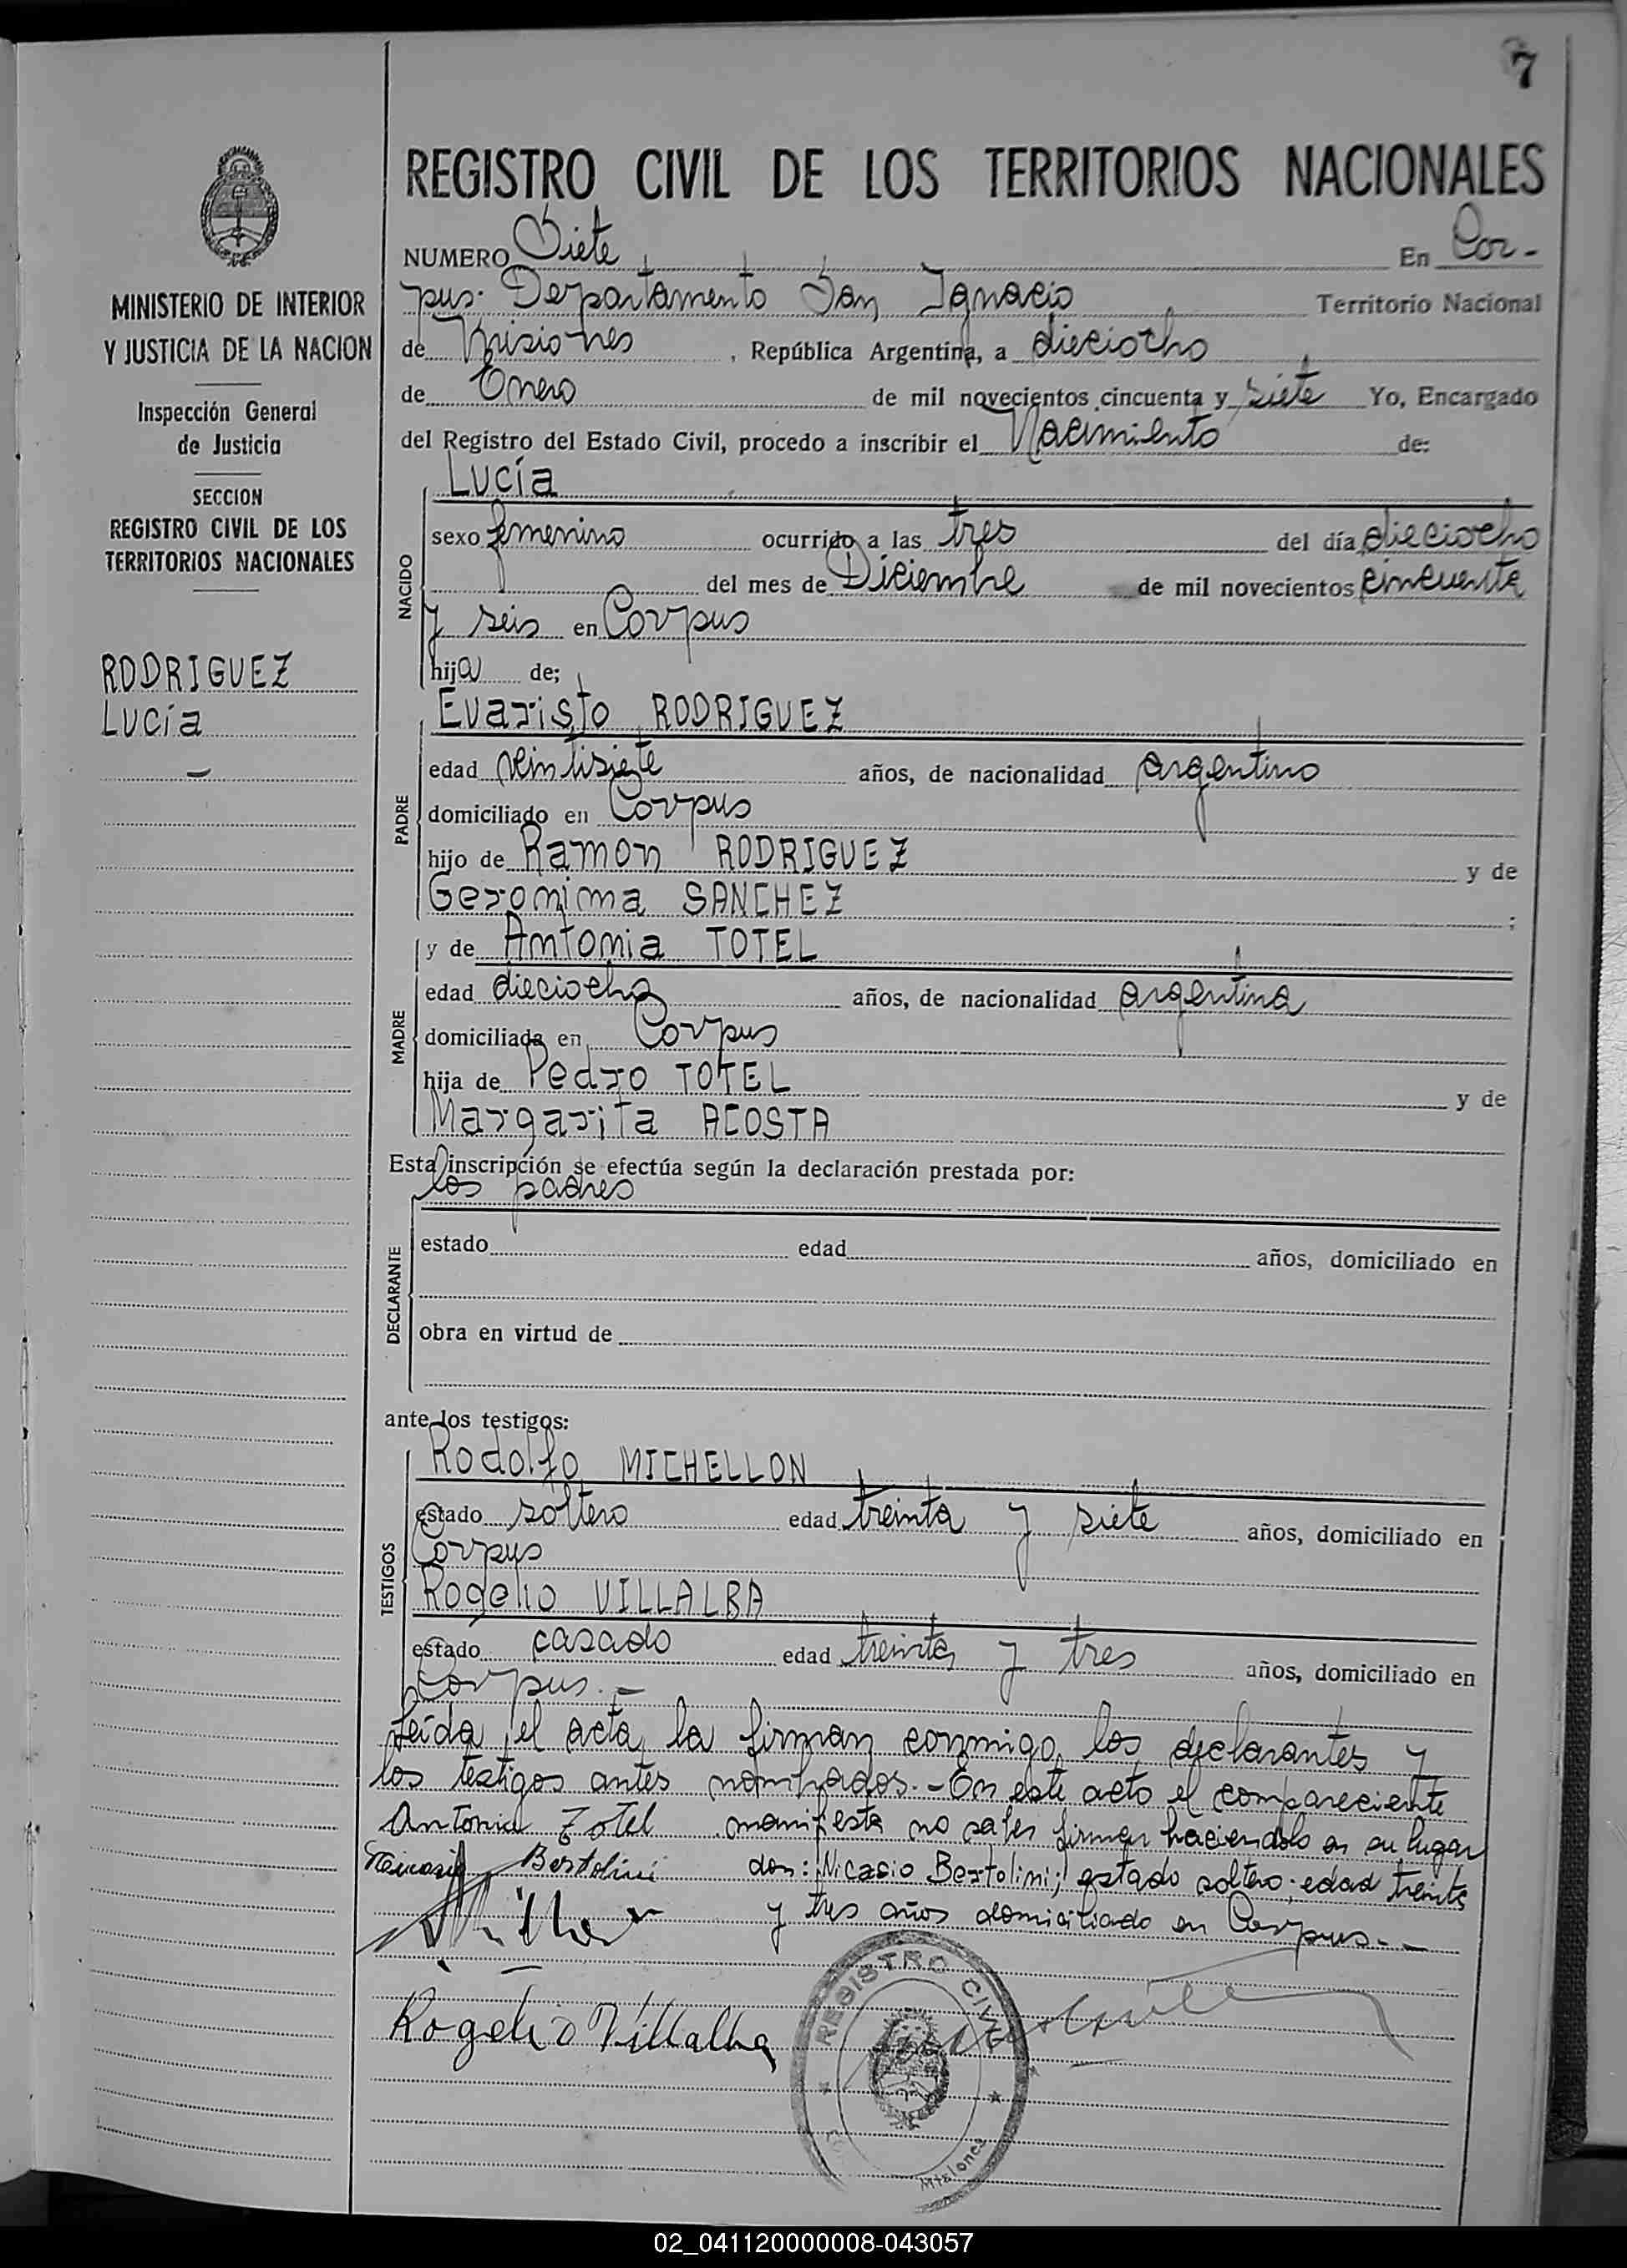 7
REGISTRO CIVIL DE LOS TERRITORIOS NACIONALES
MINISTERIO DE INTERIOR
Y JUSTICIA DE LA NACION
Inspección General
de Justicia
SECCION
REGISTRO CIVIL DE LOS
TERRITORIOS NACIONALES
RODRIGUEZ
Lucía
NUMERO Siete En Cor-
pus. Departamento San Ignacio Territorio Nacional
de Misiones, República Argentina, a dieciocho
de Enero de mil novecientos cincuenta y siete Yo, Encargado
del Registro del Estado Civil, procedo a inscribir el Nacimiento de:
NACIDO
Lucía
sexo femenino ocurrido a las tres del día dieciocho
del mes de Diciembre de mil novecientos cincuenta
y seis en Corpus
hija de;
PADRE
Evaristo RODRIGUEZ
edad veintisiete años, de nacionalidad argentino
domiciliado en Corpus
hijo de Ramon RODRIGUEZ y de
Geronima SANCHEZ ;
MADRE
y de Antonia TOTEL
edad dieciocho años, de nacionalidad argentina
domiciliada en Corpus
hija de Pedro TOTEL y de
Margarita ACOSTA
Esta inscripción se efectúa según la declaración prestada por:
DECLARANTE
los padres
estado edad años, domiciliado en
obra en virtud de
ante los testigos:
TESTIGOS
Rodolfo MICHELLON
estado soltero edad treinta y siete años, domiciliado en
Corpus
Rogelio VILLALBA
estado casado edad treinta y tres años, domiciliado en
Corpus.-
Leída el acta, la firman conmigo, los declarantes y
los testigos antes nombrados.- En este acto el compareciente
Antonia Zotel manifesta no saber firmar haciendolo en su lugar
Bertolini don: Nicasio Bertolini; estado soltero; edad treinta
y tres años domiciliado en Corpus.-
Rogelio Villalba
REGISTRO CIVIL
Misiones
02_041120000008-043057